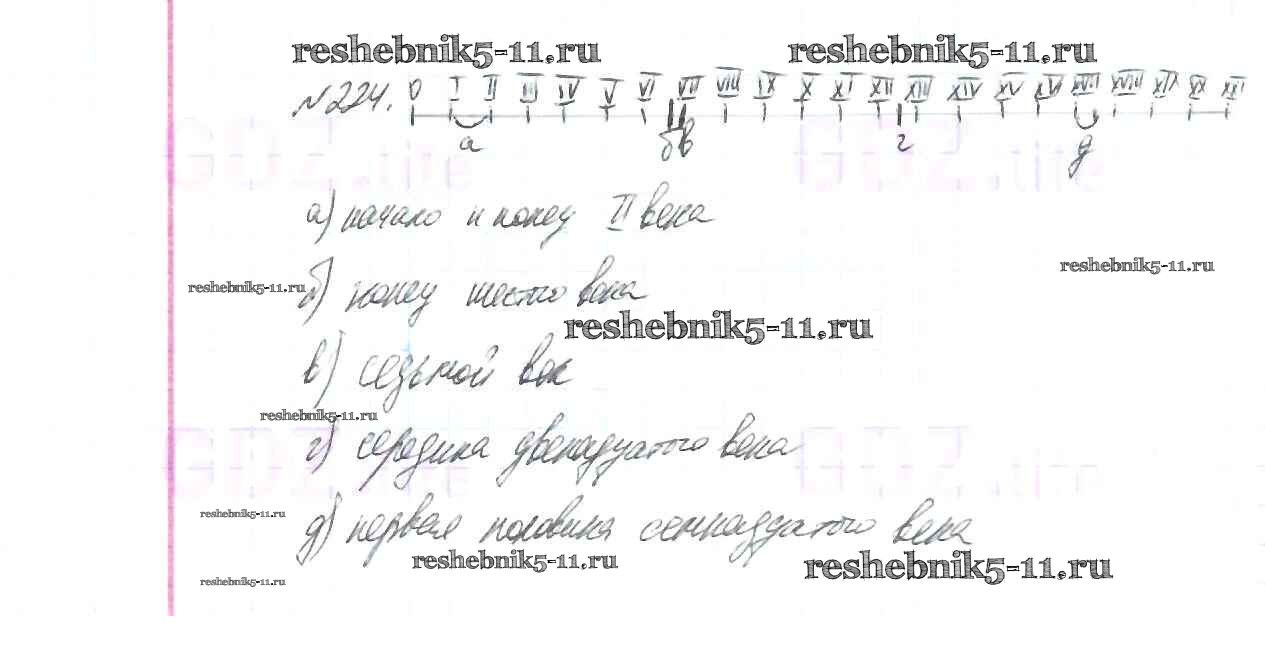 reshebnik5-11.ru reshebnik5-11.ru
№224. 0 I II III IV V VI VII VIII IX X XI XII XIII XIV XV XVI XVII XVIII XIX XX XXI
а б в г д
GDZ.life GDZ.life
а) начало и конец II века
reshebnik5-11.ru
reshebnik5-11.ru б) конец шестого века
reshebnik5-11.ru
в) седьмой век
reshebnik5-11.ru
г) середина двенадцатого века
reshebnik5-11.ru
д) первая половина семнадцатого века
reshebnik5-11.ru reshebnik5-11.ru
reshebnik5-11.ru